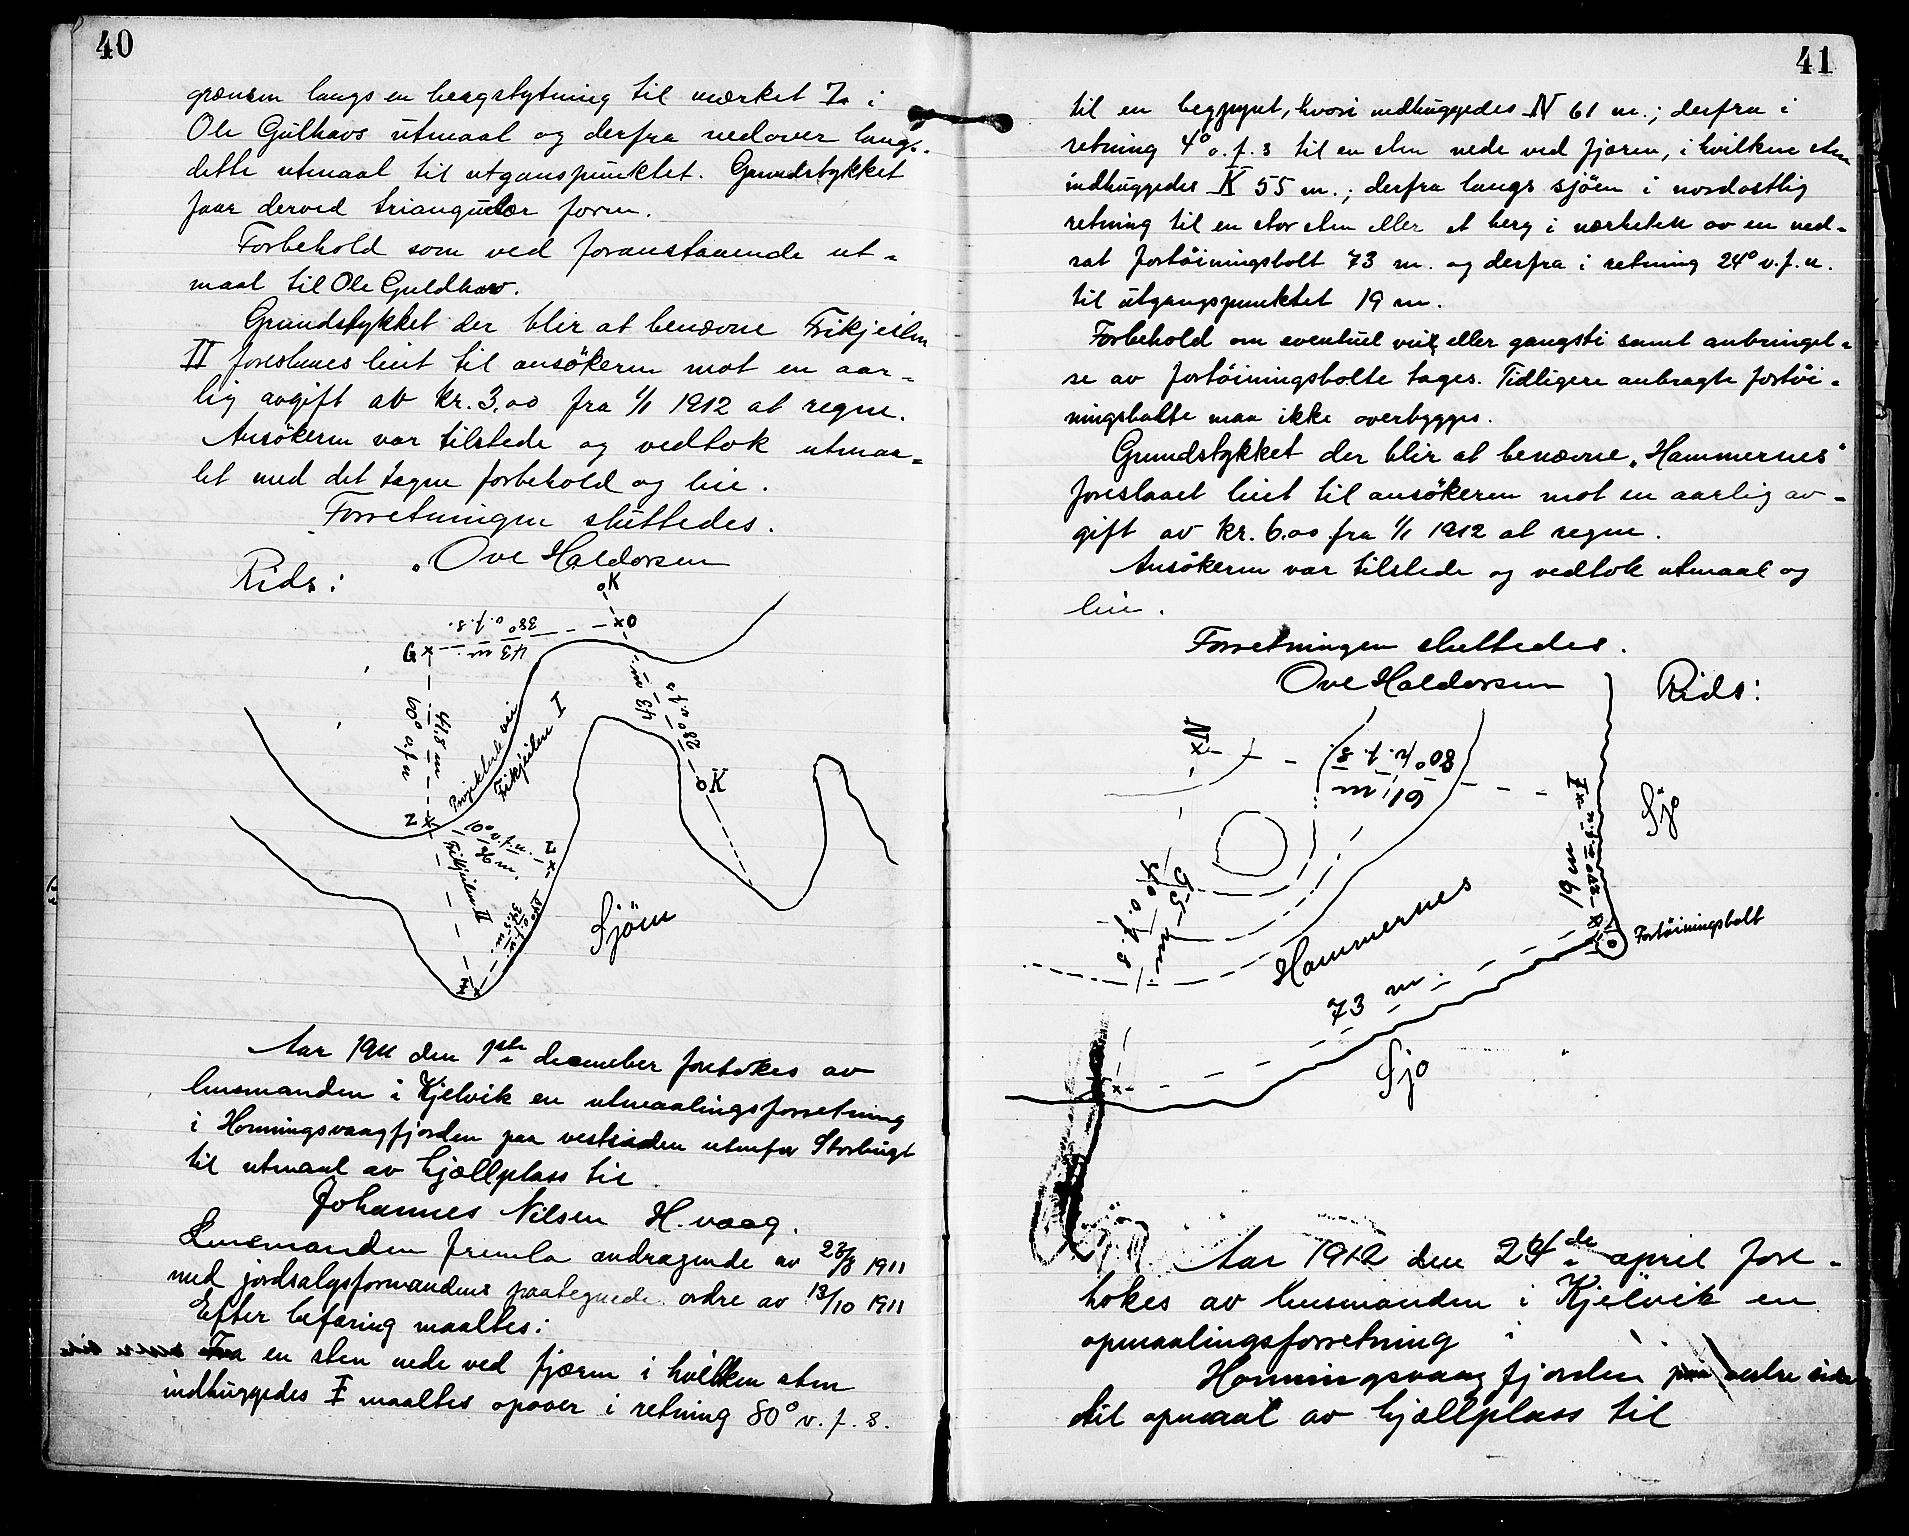 40
grænsen langs en bergstytning til mærket Z i
Ole Gulhavs utmaal og derfra nedover langs
dette utmaal til utganspunktet. Grundstykket
faar derved triangulær form.
Forbehold som ved foranstaaende ut-
maal til Ole Guldhav.
Grundstykket der blir at benævne Frikjeilen
II foreslaaes leiet til ansökeren mot en aar-
lig avgift av kr. 3,00 fra 1/1 1912 at regne.
Ansökeren var tilstede og vedtok utmaa-
let med det tagne forbehold og leie.
Forretningen sluttedes.
Ove Haldorsen
Rids:
K
O
38° o.f.s.
43 m.
G
41,8 m
60° o.f.n
Projekteret vei
Frikjeilen I
43 m
28° v.f.s
K
Z
10° v.f.n.
26 m.
Frikjeilen II
Sjöen
Aar 1911 den 1ste december foretokes av
lensmanden i Kjelvik en utmaalingsforretning
i Honningsvaagfjorden paa vestsiden utenfor Storbugt
til utmaal av hjællplass til
Johannes Nilsen H.vaag.
Lensmanden fremla andragende av 23/8 1911
med jordsalgsformandens paategnede ordre av 13/10 1911
Efter befaring maaltes:
Fra en sten nede ved fjæren i hvilken sten
indhuggedes I maaltes opover i retning 80° v.f.s.
41
til en bergpynt, hvori indhuggedes N 61 m.; derfra i
retning 4° o.f.s til en sten nede ved fjæren, i hvilken sten
indhuggedes K 55 m.; derfra langs sjöen i nordostlig
retning til en stor sten eller et berg i nærheten av en ned-
sat fortöiningsbolt 73 m. og derfra i retning 24° v.f.n.
til utgangspunktet 19 m.
Forbehold om eventuel vei eller gangsti samt anbringel-
se av fortöiningsbolte tages. Tidligere anbragte fortöi-
ningsbolte maa ikke overbygges.
Grundstykket der blir at benævne „Hammernes"
foreslaaet leiet til ansökeren mot en aarlig av-
gift av kr. 6.00 fra 1/1 1912 at regne.
Ansökeren var tilstede og vedtok utmaal og
leie.
Forretningen sluttedes.
Ove Haldorsen
Rids:
N
80° v.f.s.
61 m
I
19 m
Sjo
4° o.f.s
55 m
Hammernes
Fortöiningsbolt
73 m.
Sjo
Aar 1912 den 24de april fore-
tokes av lensmanden i Kjelvik en
opmaalingsforretning i
Honningsvaagfjorden paa vestre side
til opmaal av hjællplass til